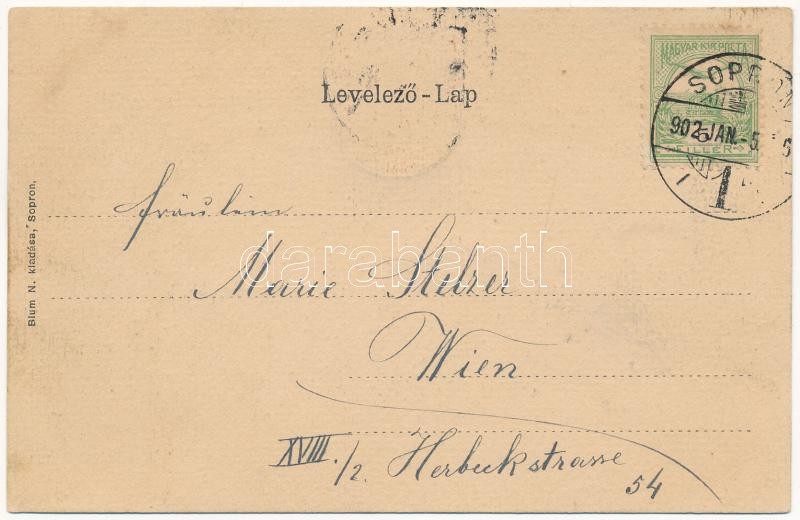 MAGYAR KIR. POSTA
FILLÉR
SOPRON
902 JAN. - 5.
Levelező - Lap
Fräulein
Marie Stelzer
Wien
XVIII./2. Herbeckstrasse
54
Blum N. kiadása, Sopron.
darabanth